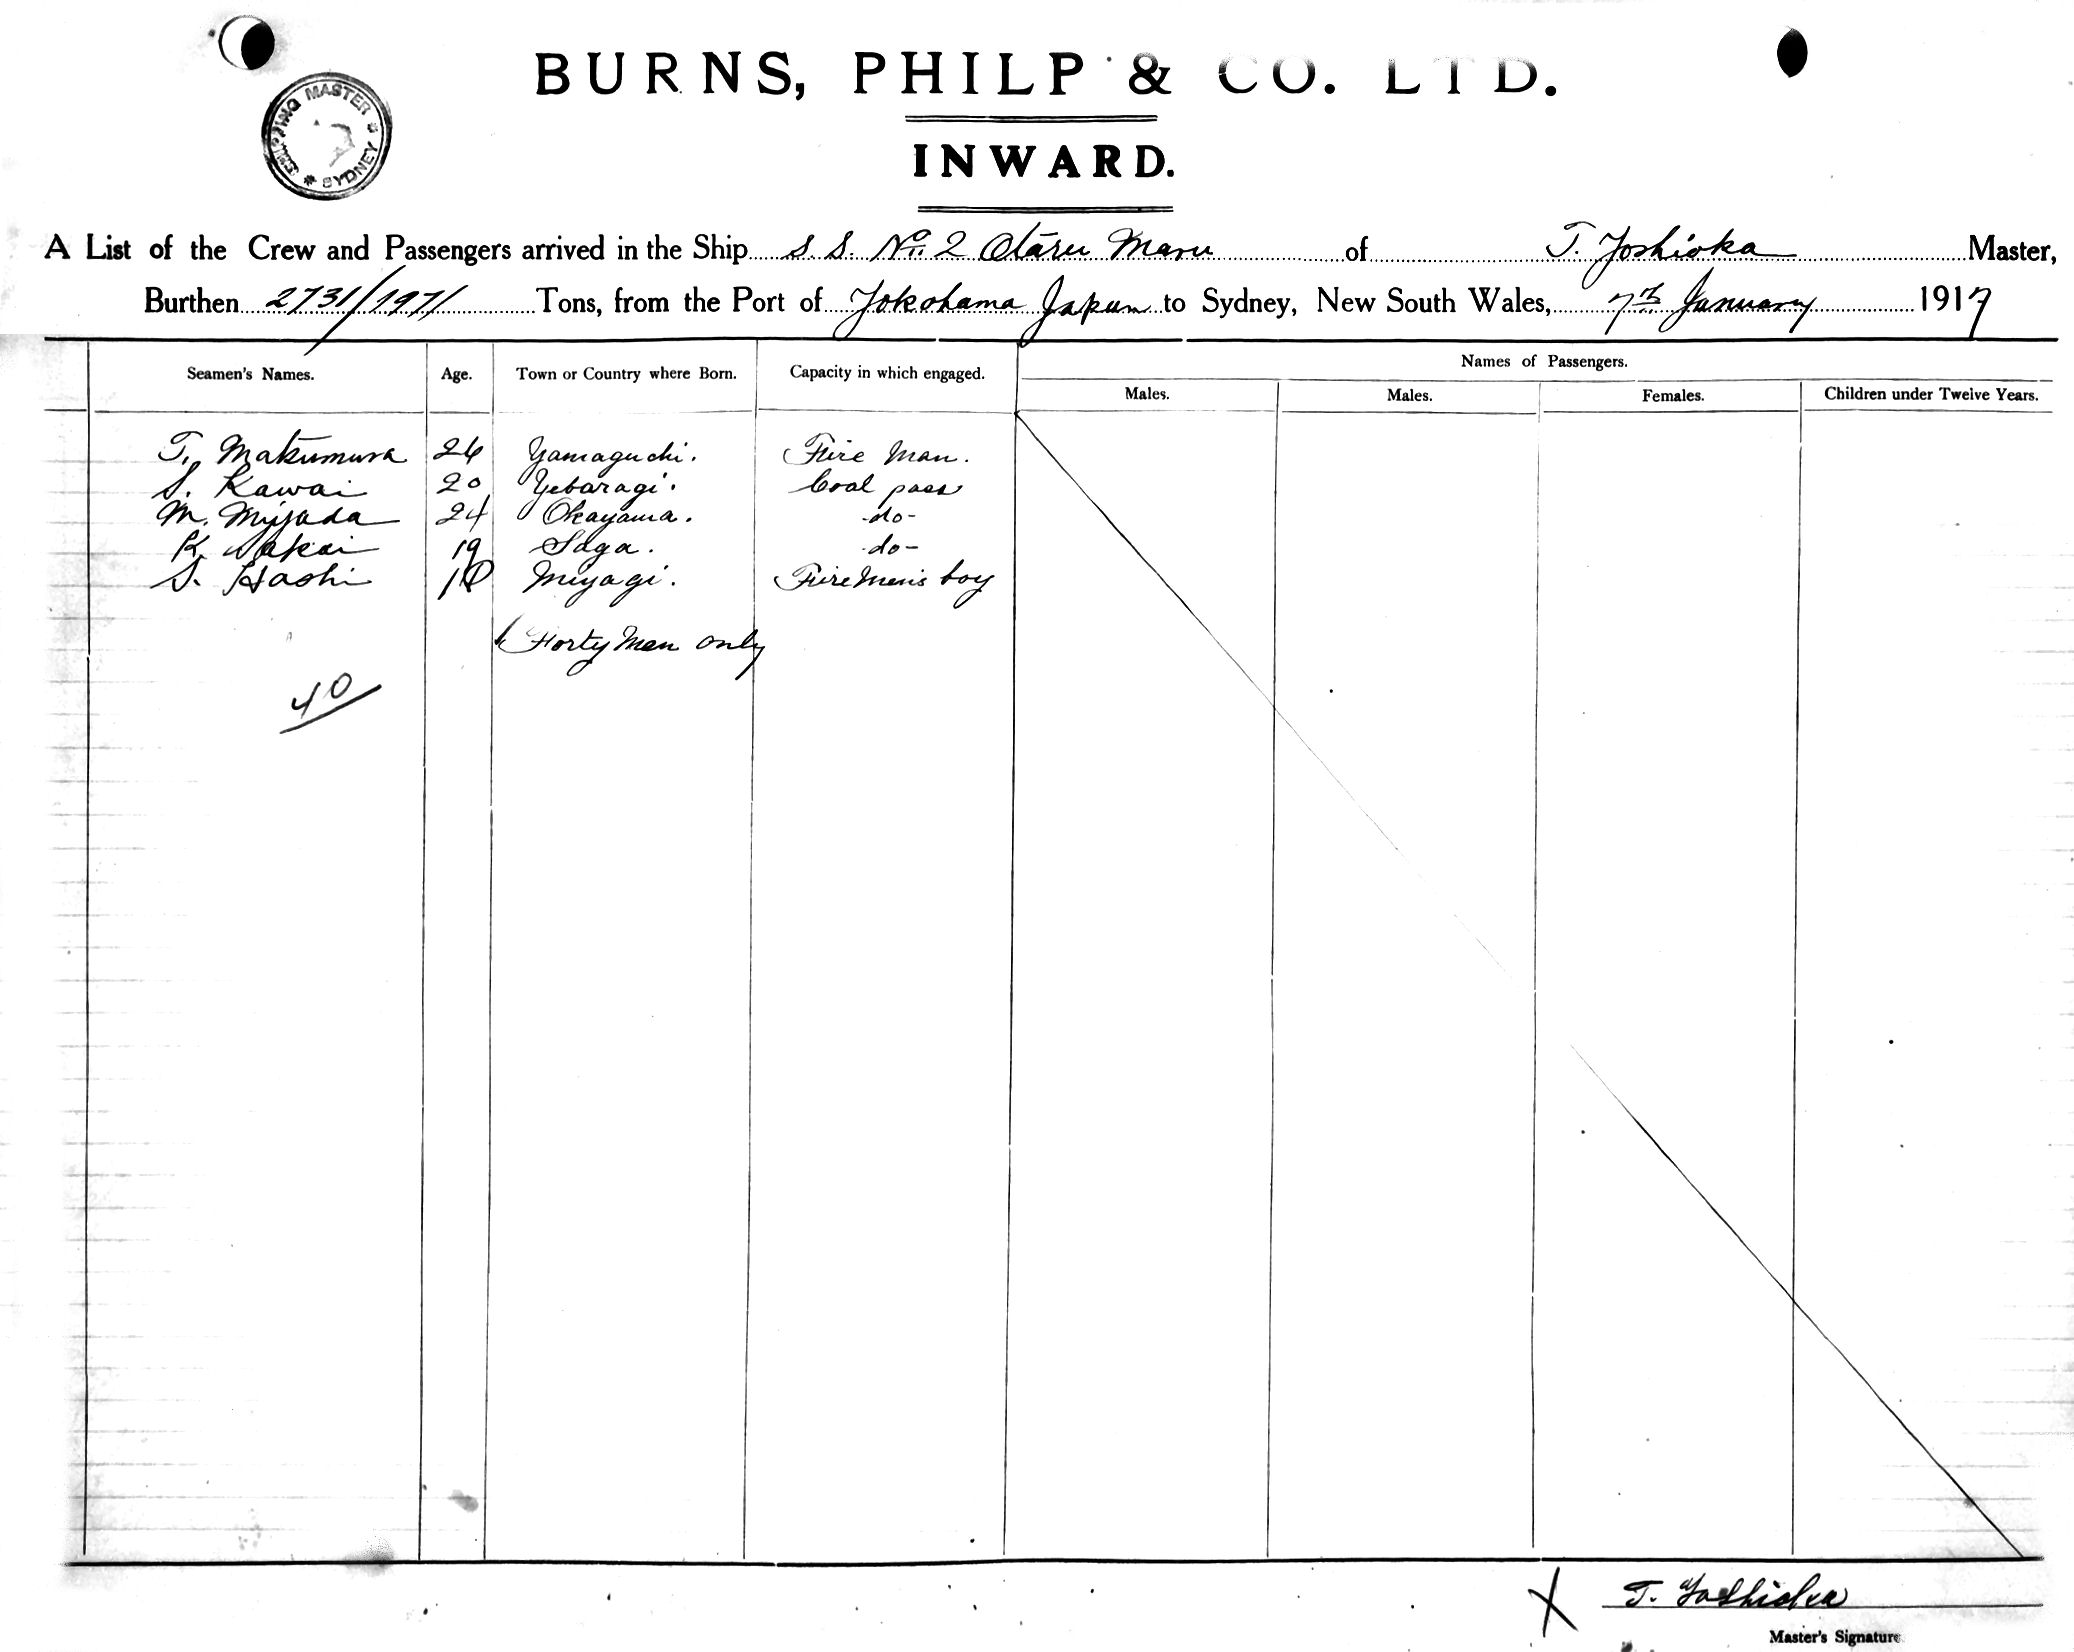 BURNS, PHILP & CO. LTD.
SHIPPING MASTER SYDNEY
INWARD.
A List of the Crew and Passengers arrived in the Ship S. S. No. 2 Otaru Maru of T. Yoshioka Master,
Burthen 2731/1971 Tons, from the Port of Yokohama Japan to Sydney, New South Wales, 7th January 1917
Names of Passengers.
Seamen's Names. Age. Town or Country where Born. Capacity in which engaged. Males. Males. Females. Children under Twelve Years.
T. Matsumura 26 Yamaguchi. Fire Man.
S. Kawai 20 Yebaragi. Coal pass
M. Miyada 24 Okayama. -do-
K. Sakai 19 Saga. -do-
S. Hashi Miyagi. Fire Men's boy
Forty Men only
40
X T. Yoshioka
Master's Signature